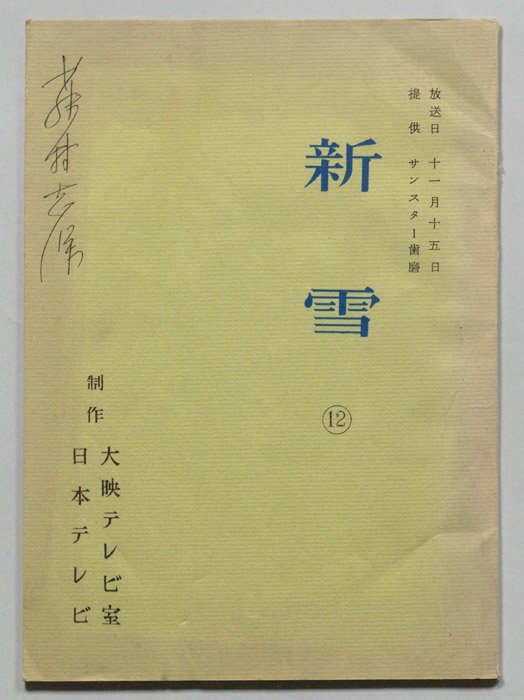 放送日 十一月十五日
提供 サンスター歯磨
新雪
⑫
制作 大映テレビ室
日本テレビ
藤村志保